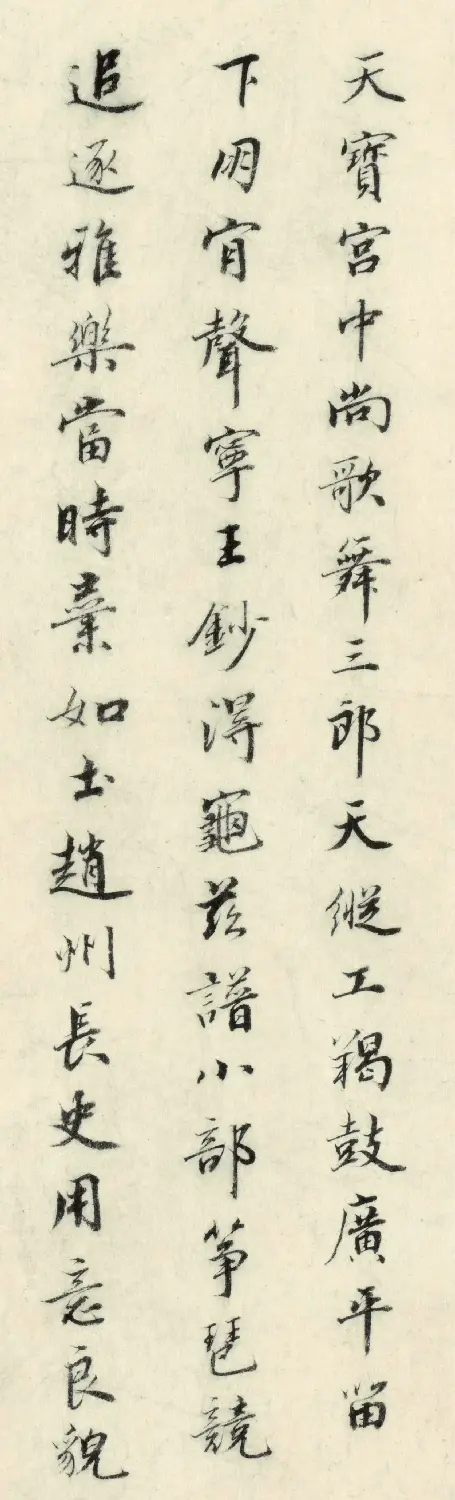 天寶宮中尚歌舞三郎天縱工羯鼓廣平留
下朋肎聲寧王鈔得龜茲譜小部箏琶競
追逐雅樂當時棄如土趙州長史用意良貌